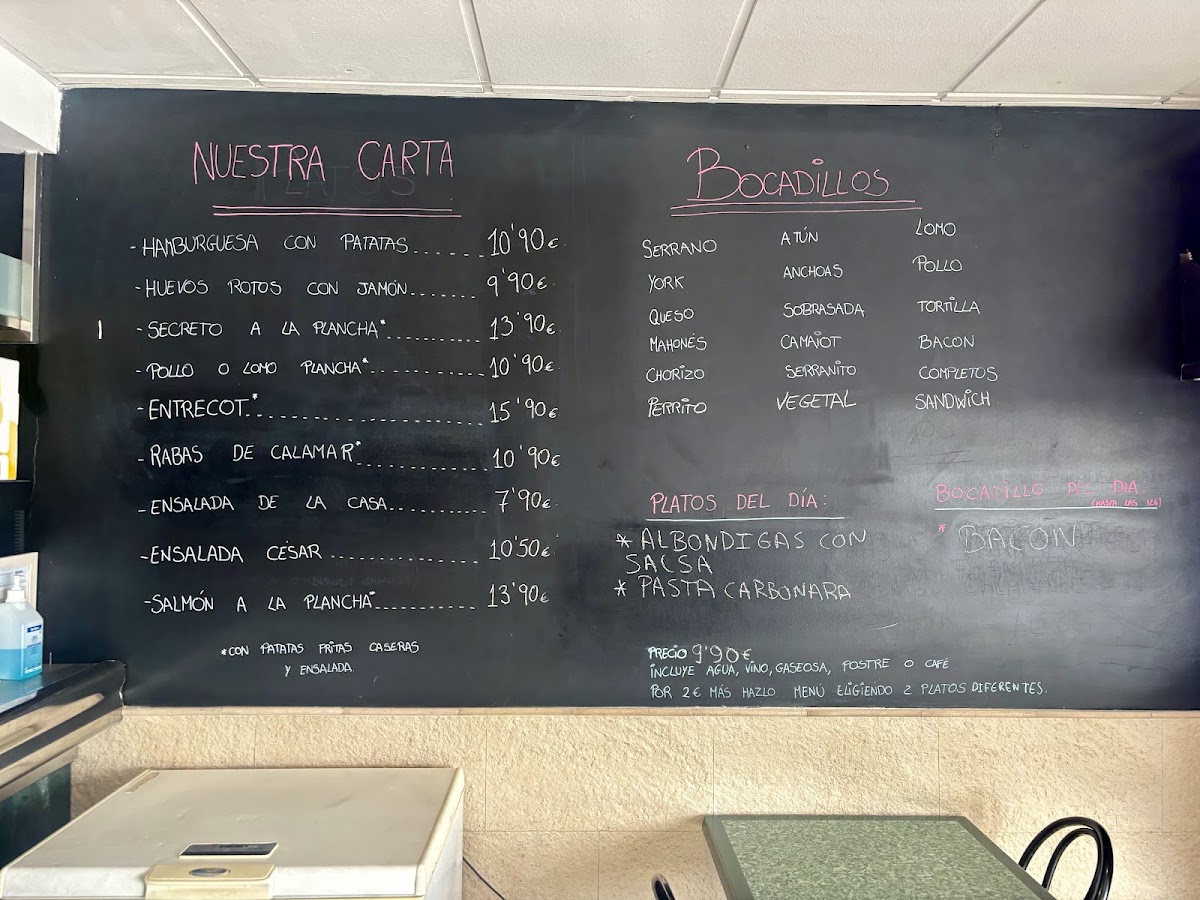 NUESTRA CARTA
- HAMBURGUESA CON PATATAS....... 10'90€
- HUEVOS ROTOS CON JAMÓN....... 9'90€
- SECRETO A LA PLANCHA*.......... 13'90€
- POLLO O LOMO PLANCHA*............ 10'90€
- ENTRECOT*.................... 15'90€
- RABAS DE CALAMAR*............ 10'90€
- ENSALADA DE LA CASA......... 7'90€
- ENSALADA CÉSAR .............. 10'50€
- SALMÓN A LA PLANCHA*.......... 13'90€
*CON PATATAS FRITAS CASERAS
Y ENSALADA
BOCADILLOS
SERRANO ATÚN LOMO
YORK ANCHOAS POLLO
QUESO SOBRASADA TORTILLA
MAHONÉS CAMAIOT BACON
CHORIZO SERRANITO COMPLETOS
PERRITO VEGETAL SANDWICH
PLATOS DEL DÍA:
* ALBONDIGAS CON
SALSA
* PASTA CARBONARA
BOCADILLO DEL DIA
(HASTA LAS 12h)
* BACON
PRECIO 9'90€
INCLUYE AGUA, VINO, GASEOSA, POSTRE O CAFÉ
POR 2€ MÁS HAZLO MENÚ ELIGIENDO 2 PLATOS DIFERENTES.